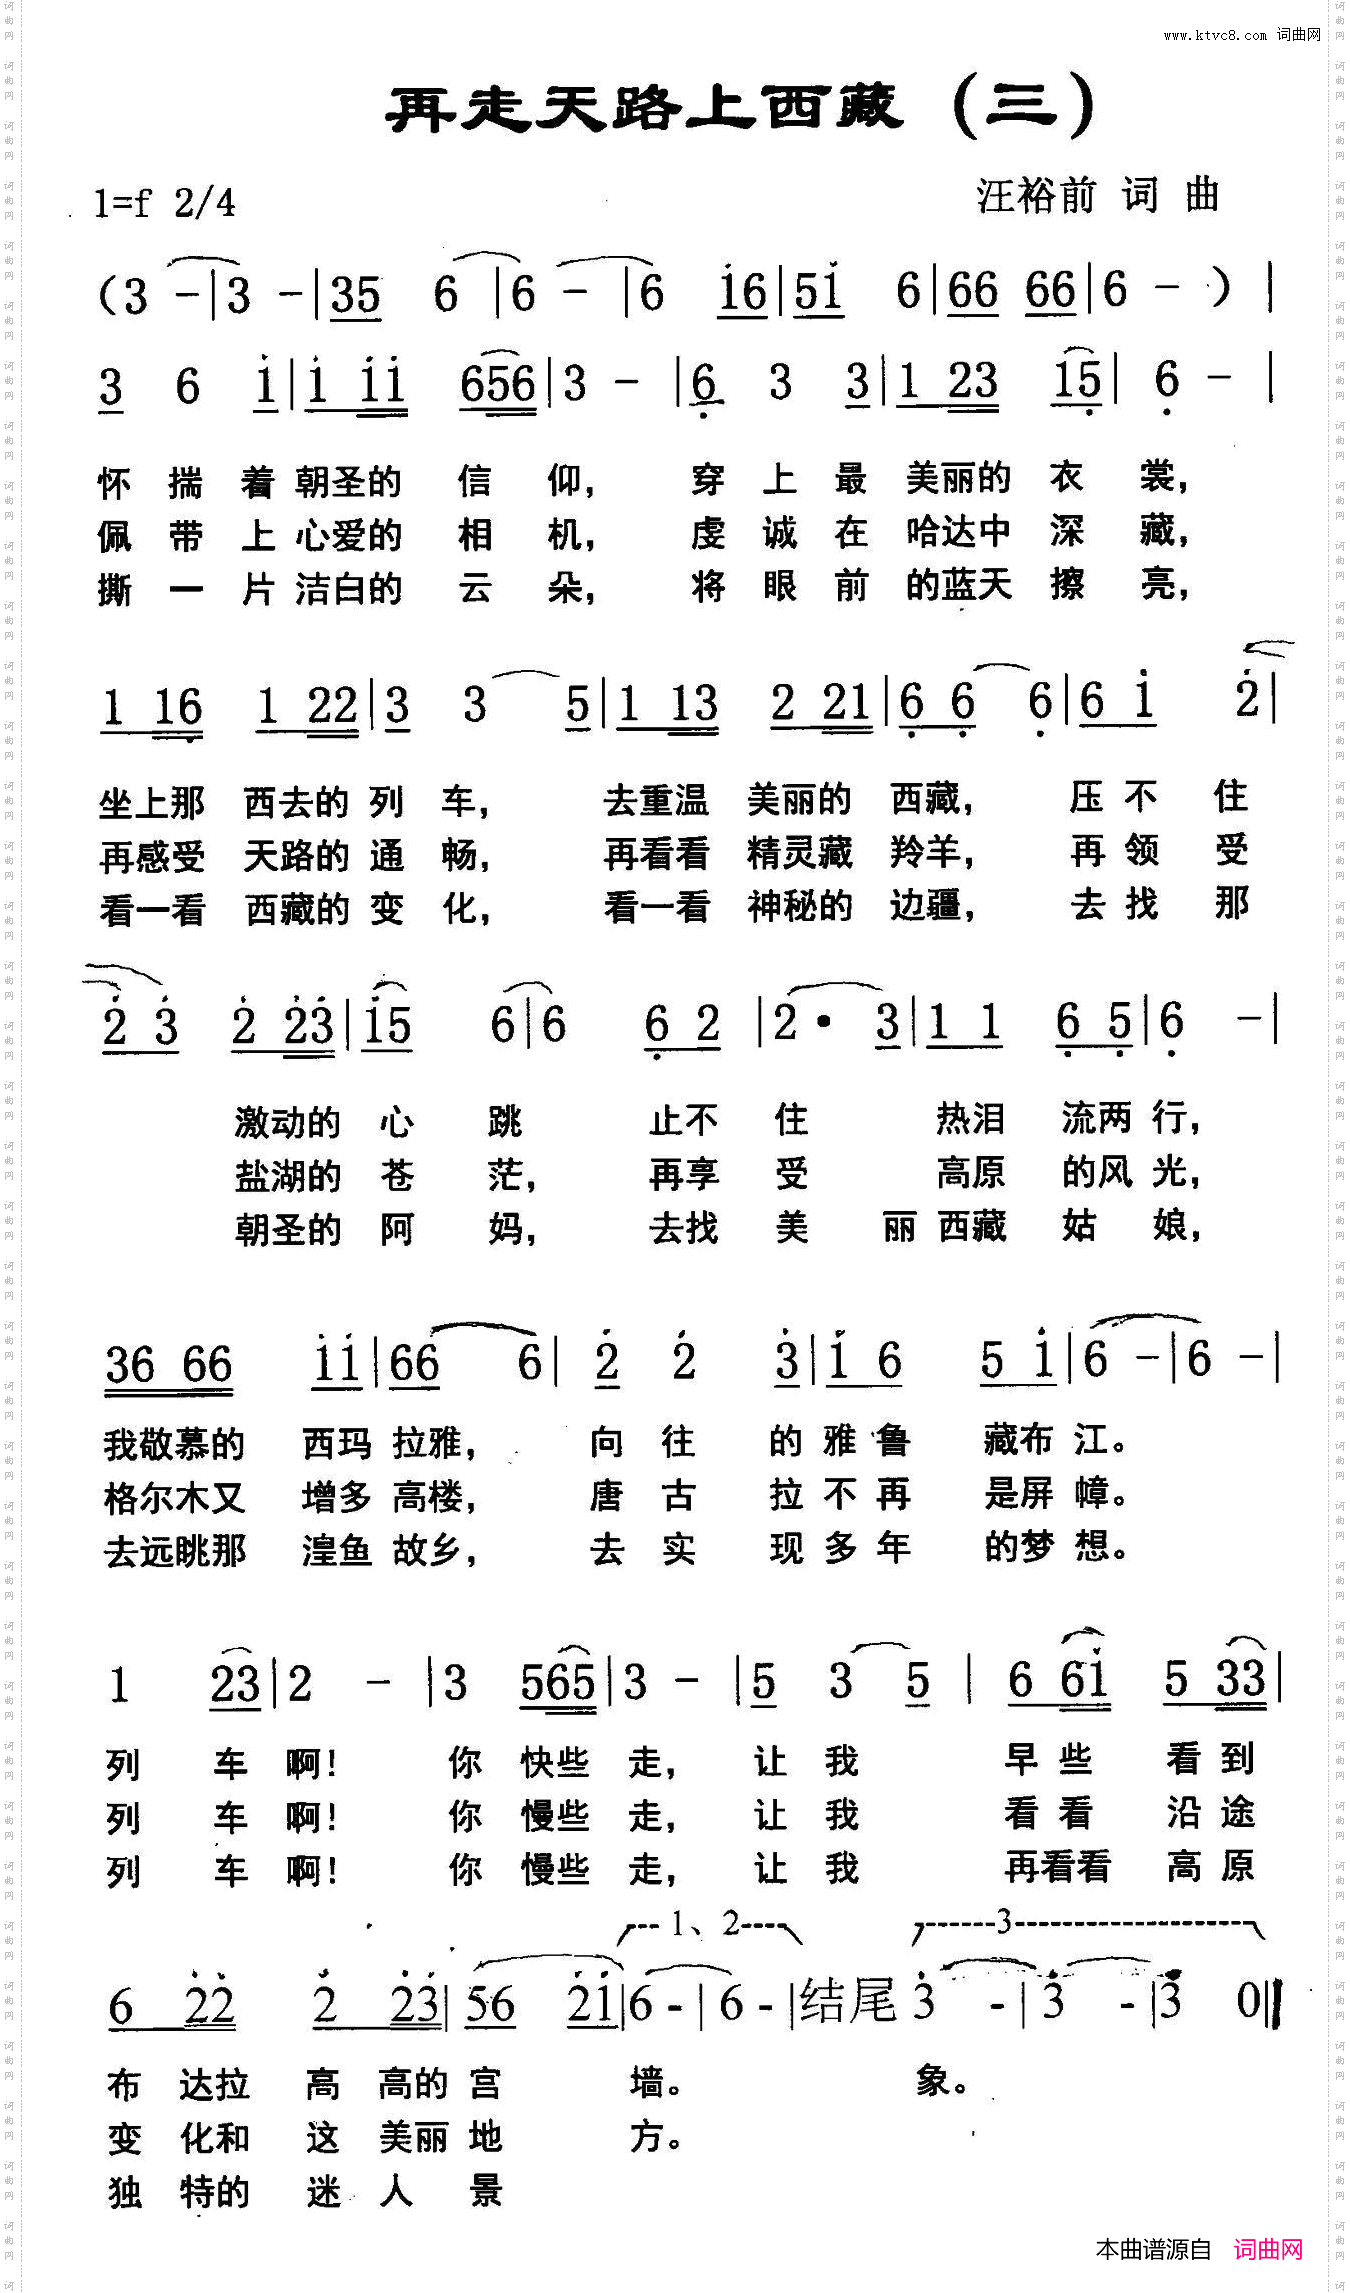 www.ktvc8.com 词曲网
再走天路上西藏（三）
1=f 2/4
汪裕前 词 曲
（3 -|3 -|35 6|6 -|6 i6|5i 6|66 66|6 -）|
3 6 i|i ii 656|3 -|6 3 3|1 23 15|6 -|
怀揣着朝圣的信仰，穿上最美丽的衣裳，
佩带上心爱的相机，虔诚在哈达中深藏，
撕一片洁白的云朵，将眼前的蓝天擦亮，
1 16 1 22|3 3 5|1 13 2 21|6 6 6|6 i 2|
坐上那西去的列车，去重温美丽的西藏，压不住
再感受天路的通畅，再看看精灵藏羚羊，再领受
看一看西藏的变化，看一看神秘的边疆，去找那
2 3 2 23|i5 6|6 6 2|2· 3|1 1 6 5|6 -|
激动的心跳 止不住 热泪流两行，
盐湖的苍茫，再享受 高原的风光，
朝圣的阿妈，去找美丽西藏姑娘，
36 66 ii|66 6|2 2 3|i 6 5 i|6 -|6 -|
我敬慕的西玛拉雅，向往的雅鲁藏布江。
格尔木又增多高楼，唐古拉不再是屏幛。
去远眺那湟鱼故乡，去实现多年的梦想。
1 23|2 -|3 565|3 -|5 3 5|6 6i 5 33|
列车啊！你快些走，让我早些看到
列车啊！你慢些走，让我看看沿途
列车啊！你慢些走，让我再看看高原
1、2 3
6 22 2 23|56 2i|6 -|6 -|结尾 3 -|3 -|3 0‖
布达拉高高的宫墙。象。
变化和这美丽地方。
独特的迷人景
本曲谱源自 词曲网